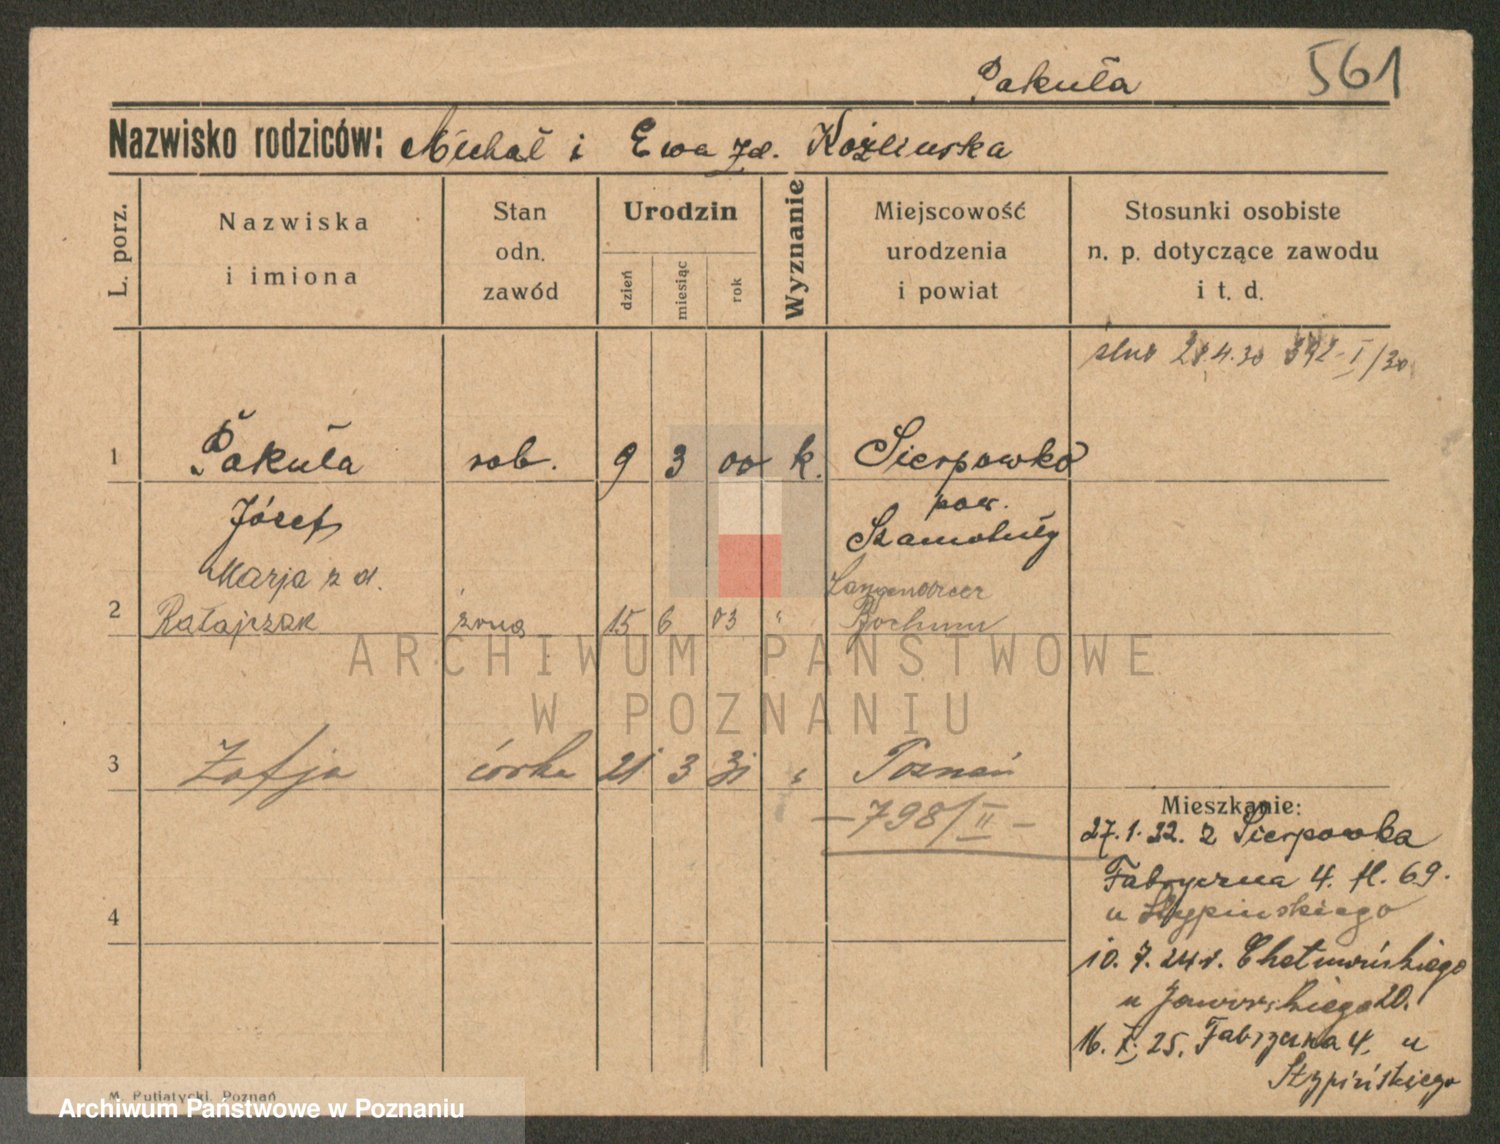 Pakuła 561
Nazwisko rodziców: Michał i Ewa zd. Koźlinska
L. porz. Nazwiska i imiona Stan odn. zawód Urodzin dzień miesiąc rok Wyznanie Miejscowość urodzenia i powiat Stosunki osobiste n. p. dotyczące zawodu i t. d.
28.4.30 342-I/30
1 Pakuła rob. 9 3 00 k. Sierpowko
Józef pow.
Szamotuły
Marja z d. Langendreer
2 Ratajczak żona 15 6 03 " Bochum
ARCHIWUM PAŃSTWOWE
W POZNANIU
3 Zofja córka 21 3 31 " Poznań
—798/II—
Mieszkanie:
27.1.22. z Sierpowka
Fabryczna 4. fl. 69.
u Stypinskiego
4
10.7.24 r. Chełmońskiego
u Jaworskiego 20.
16.X.25. Fabryczna 4. u
Stypińskiego
M. Putiatycki, Poznań
Archiwum Państwowe w Poznaniu